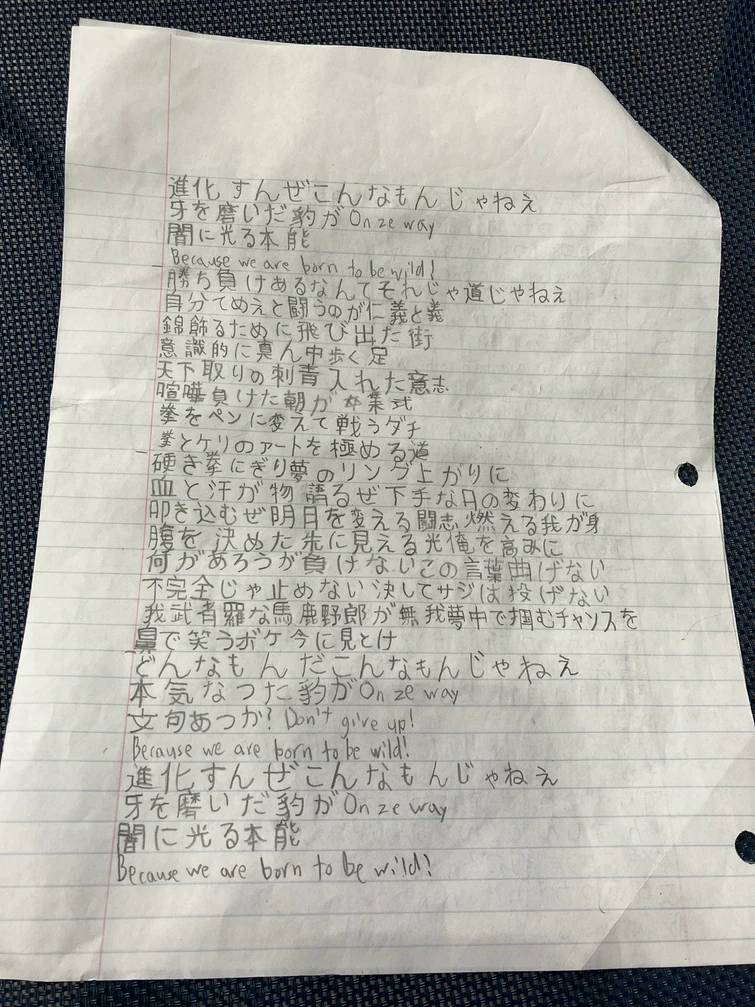 進化すんぜこんなもんじゃねえ
牙を磨いだ豹がOn ze way
闇に光る本能
Because we are born to be wild!
勝ち負けあるなんてそれじゃ道じゃねえ
自分てめえと闘うのが仁義と義
錦飾るために飛び出た街
意識的に真ん中歩く足
天下取りの刺青入れた意志
喧嘩負けた朝が卒業式
拳をペンに変えて戦うダチ
拳とケリのアートを極める道
硬き拳にぎり夢のリング上がりに
血と汗が物語るぜ下手な口の変わりに
叩き込むぜ明日を変える闘志燃える我が身
腹を決めた先に見える光俺を高みに
何があろうが負けないこの言葉曲げない
不完全じゃ止めない決してサジは投げない
我武者羅な馬鹿野郎が無我夢中で掴むチャンスを
鼻で笑うボケ今に見とけ
どんなもんだこんなもんじゃねえ
本気なった豹がOn ze way
文句あっか? Don't give up!
Because we are born to be wild!
進化すんぜこんなもんじゃねえ
牙を磨いだ豹がOn ze way
闇に光る本能
Because we are born to be wild!